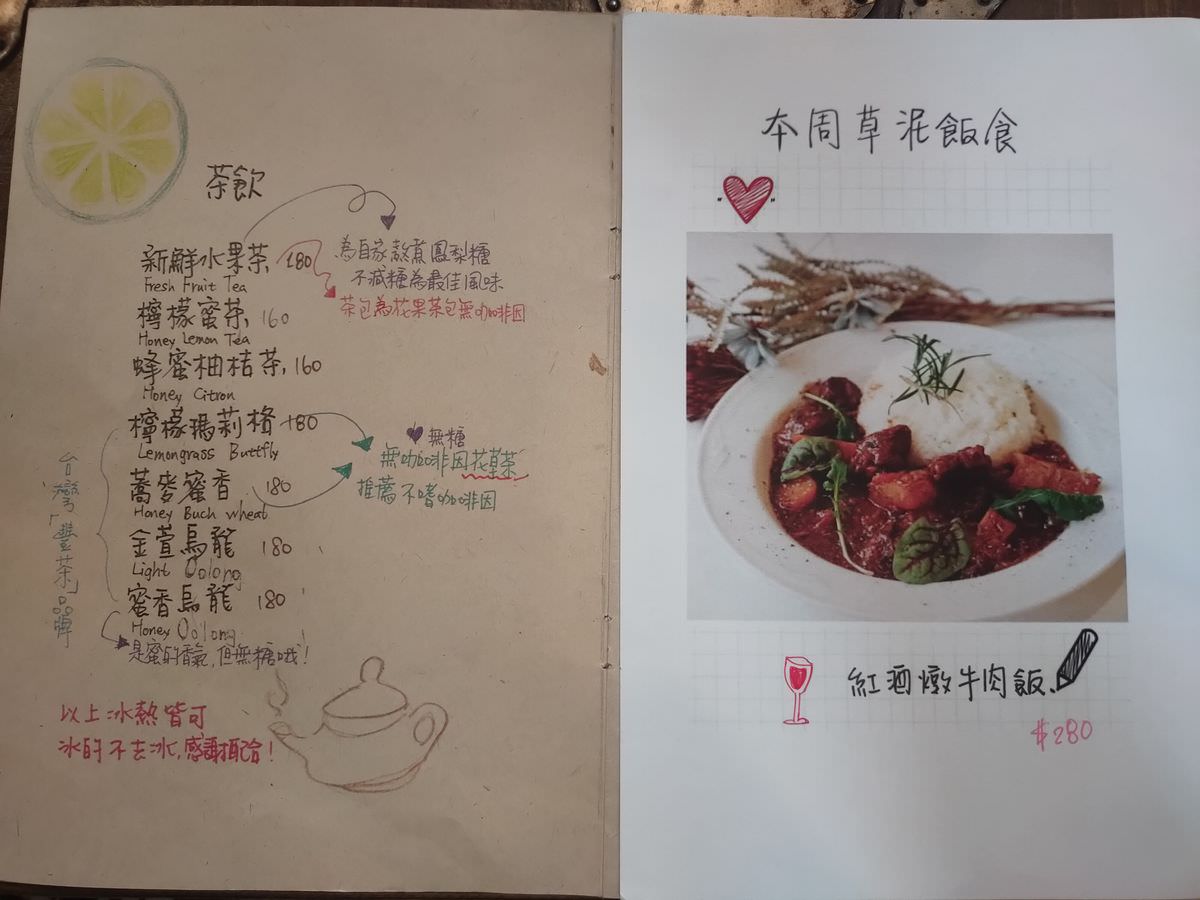 茶飲
新鮮水果茶 180
Fresh Fruit Tea
為自家熬煮鳳梨糖
不減糖為最佳風味
茶包為花果茶包無咖啡因
檸檬蜜茶 160
Honey Lemon Tea
蜂蜜柚桔茶 160
Honey Citron
檸檬瑪莉格 180
Lemongrass Buttfly
無糖
無咖啡因花草茶
推薦不嗜咖啡因
蕎麥蜜香 180
Honey Buch wheat
金萱烏龍 180
Light Oolong
蜜香烏龍 180
Honey Oolong
是蜜的香氣,但無糖哦!
台灣「豐茶」品牌
以上冰熱皆可
冰的不去冰,感謝配合!
本周草泥飯食
紅酒燉牛肉飯
$280